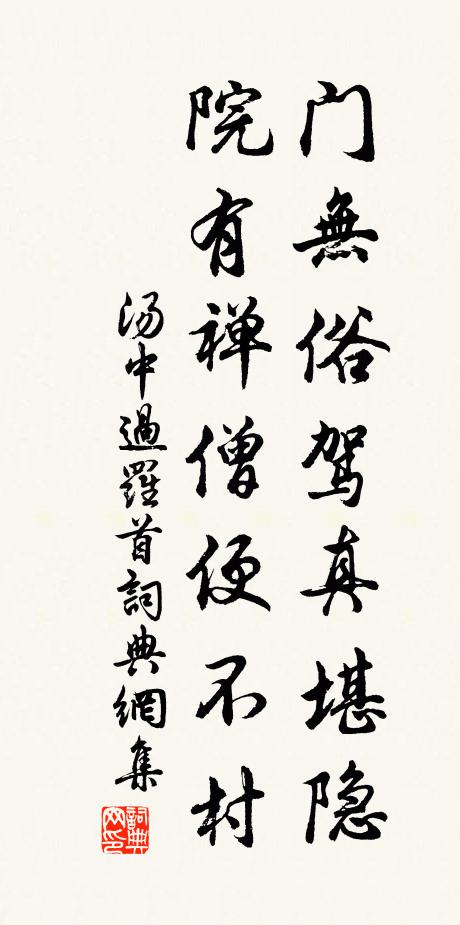 门無俗驾真堪隐
院有禅僧便不村
汤中過羅首詞典網集
詞典网印